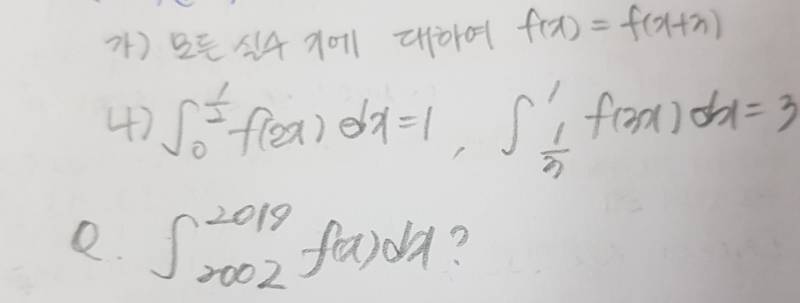 가) 모든 실수 x에 대하여 f(x) = f(x+3)
나) ∫₀^{1/2} f(2x) dx = 1, ∫_{1/3}^{1} f(3x) dx = 3
Q. ∫_{2002}^{2019} f(x) dx?